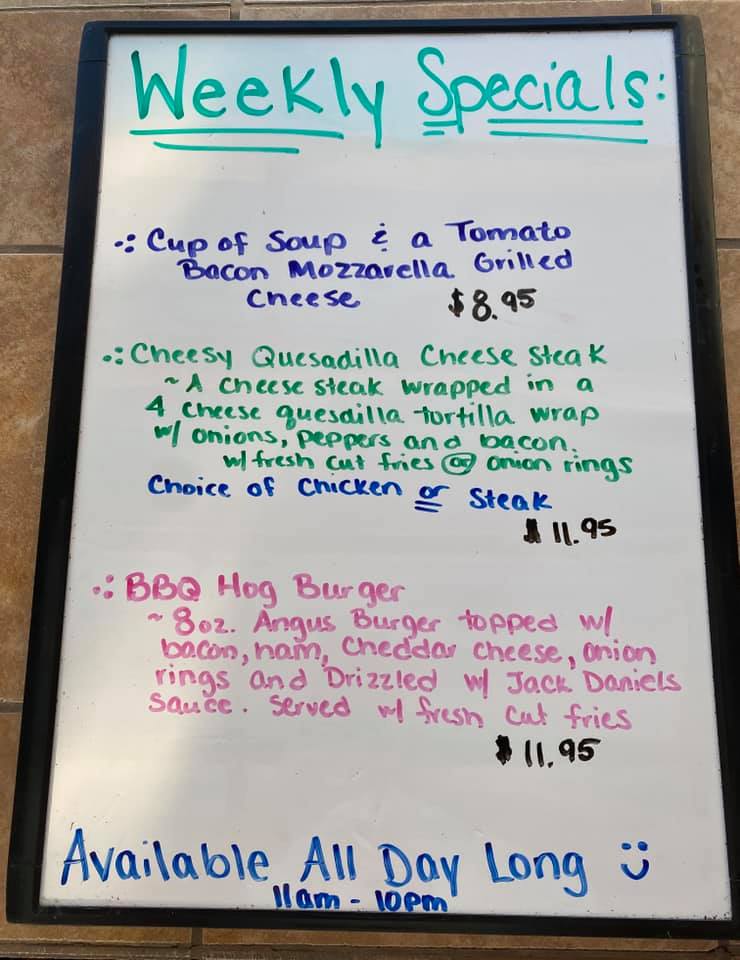 Weekly Specials:
Cup of Soup & a Tomato
Bacon Mozzarella Grilled
Cheese $8.95
Cheesy Quesadilla Cheese Steak
~ A cheese steak wrapped in a
4 cheese quesailla tortilla wrap
w/ onions, peppers and bacon.
w/ fresh cut fries or onion rings
Choice of Chicken or Steak
$11.95
BBQ Hog Burger
~ 8oz. Angus Burger topped w/
bacon, ham, Cheddar cheese, onion
rings and Drizzled w/ Jack Daniels
Sauce. Served w/ fresh cut fries
$11.95
Available All Day Long
11am - 10pm